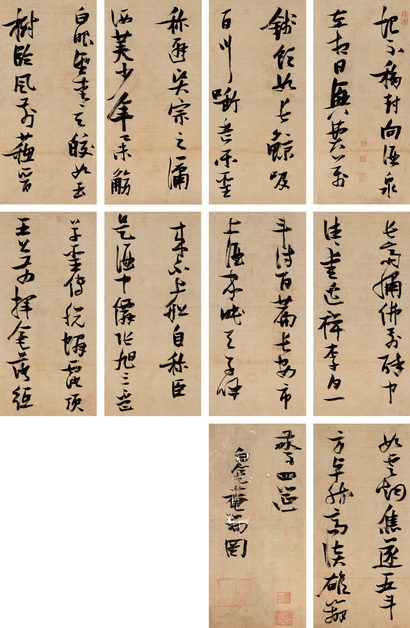 恨不移封向酒泉
左相日興費萬
錢飲如長鯨吸
百川銜盃樂聖
稱避賢宗之瀟
洒美少年舉觴
白眼望青天皎如玉
樹臨風前蘇晉
長齋繡佛前醉中
往往愛逃禪李白一
斗詩百篇長安市
上酒家眠天子呼
來不上船自稱臣
是酒中僊張旭三盃
草聖傳脫帽露頂
王公前揮毫落紙
如雲烟焦遂五斗
方卓然高談雄辯
驚四筵
白毫菴瑞圖